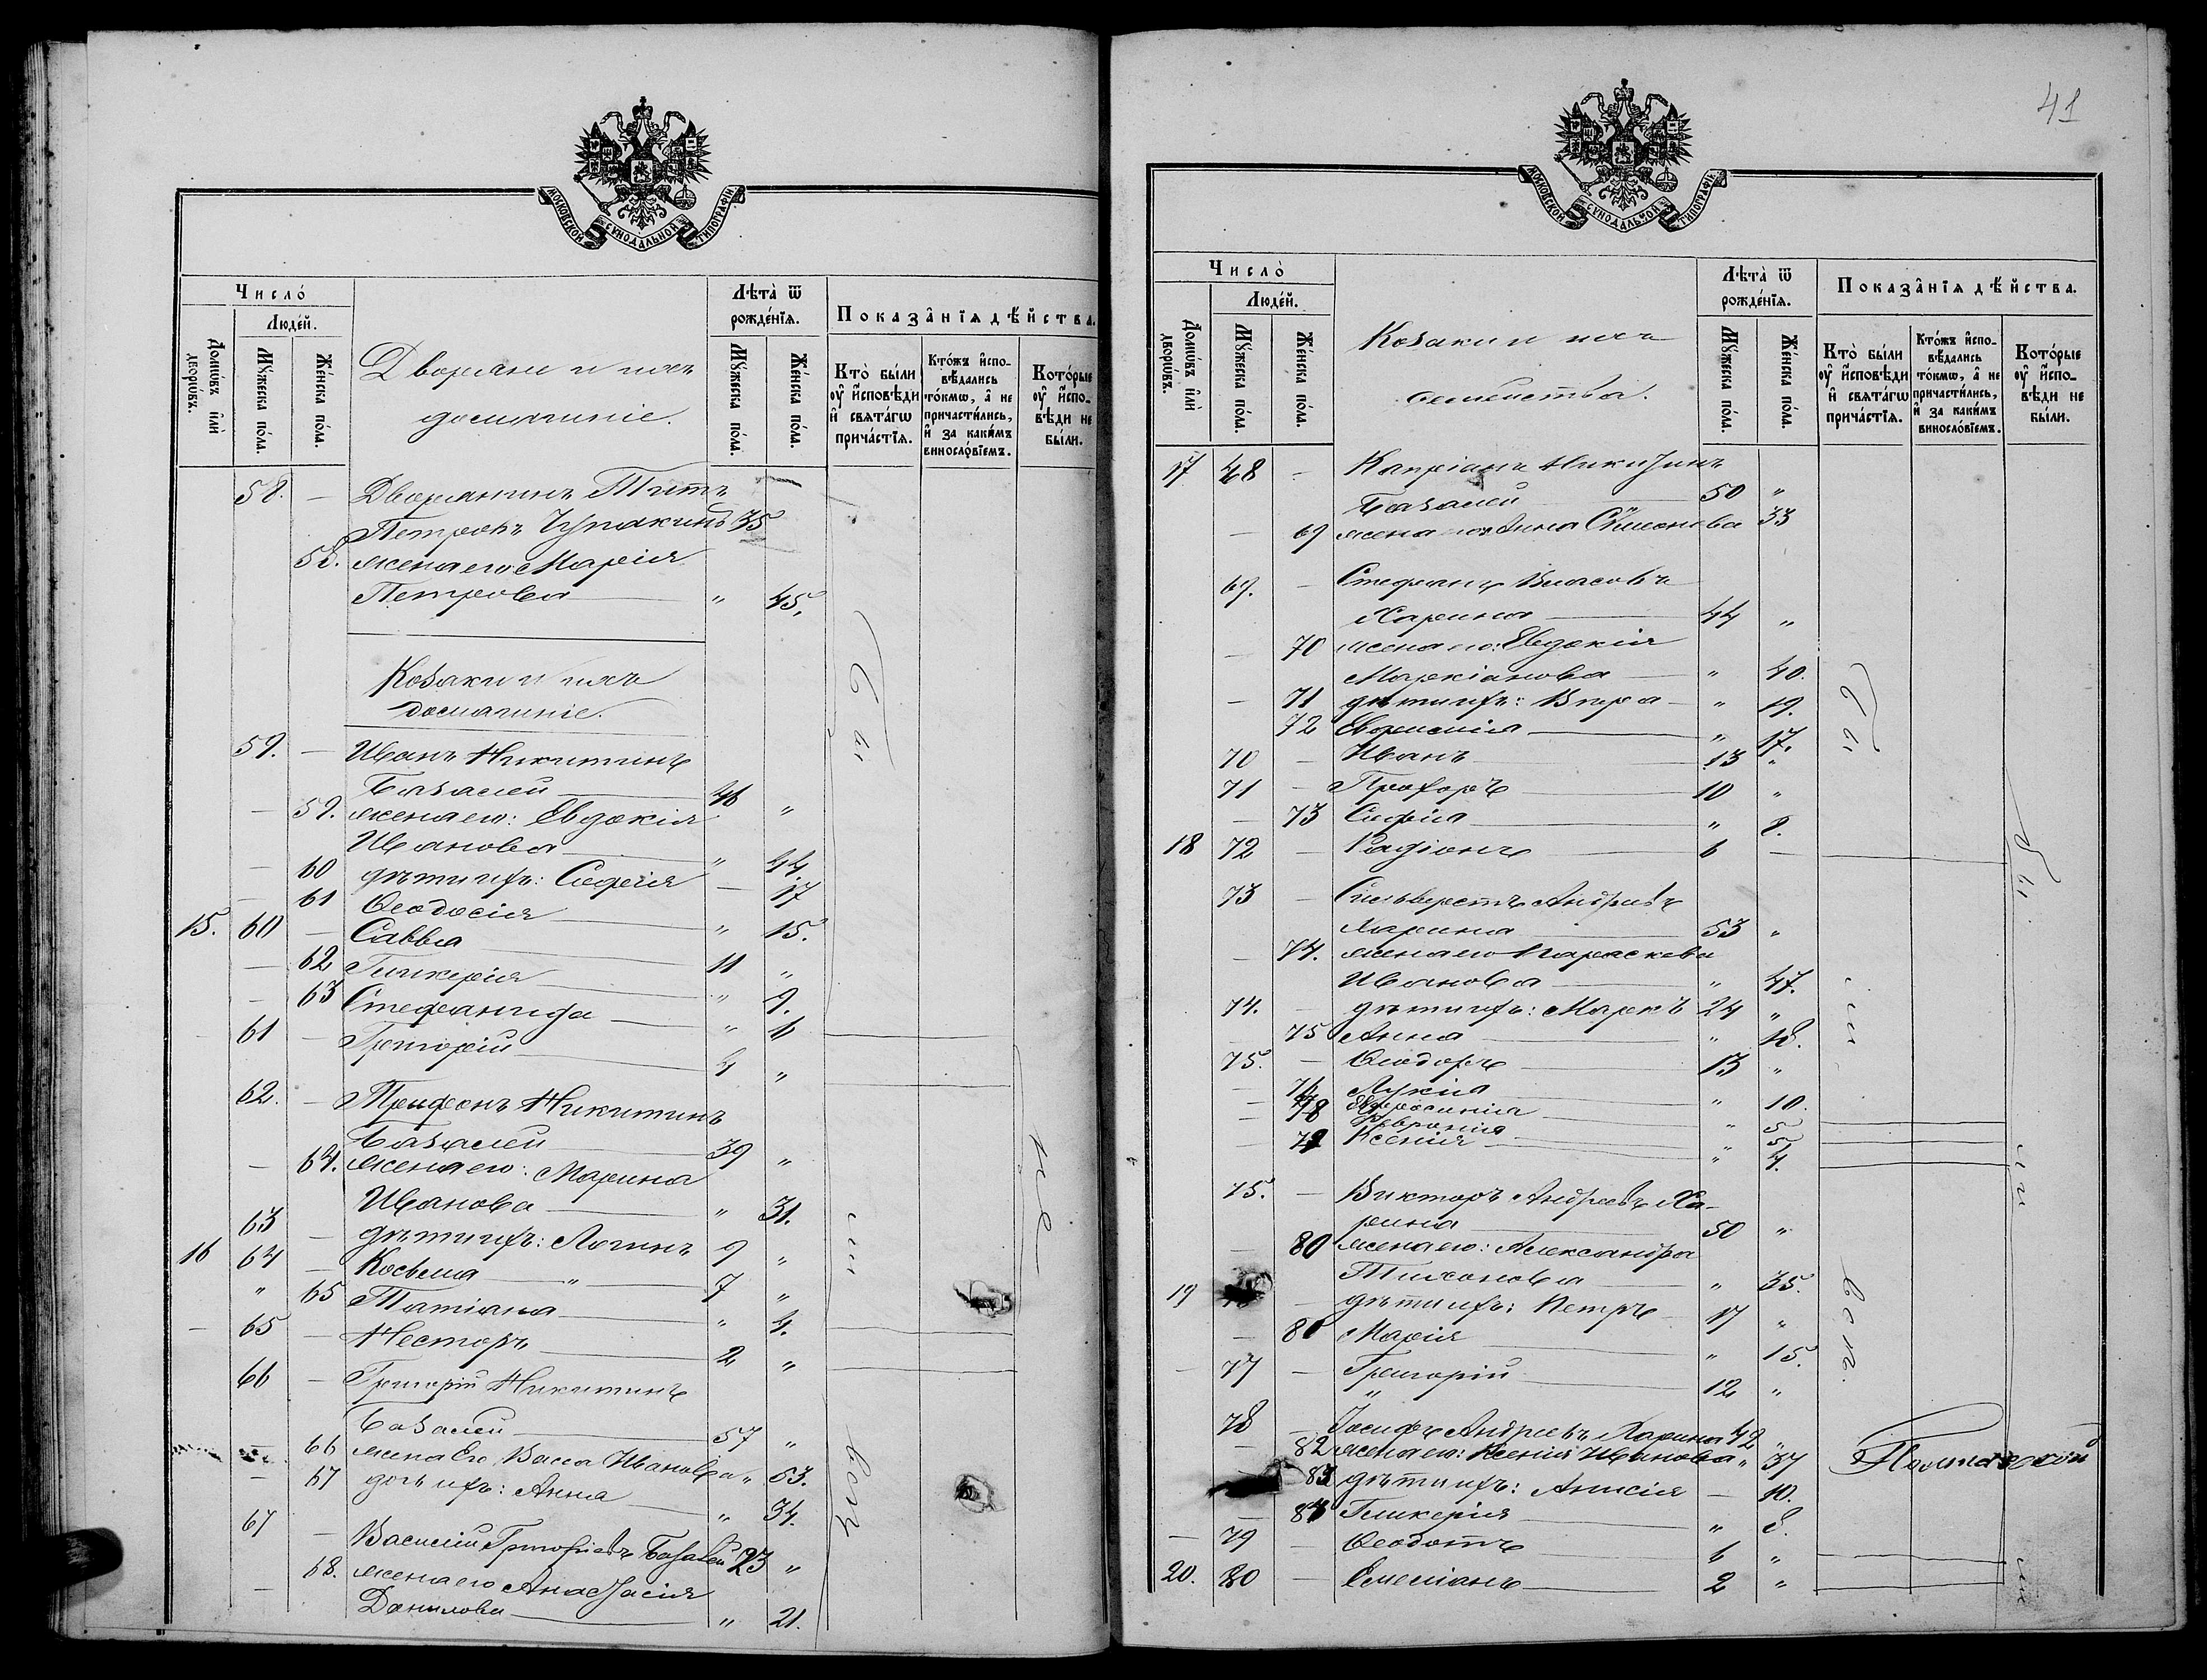 МОСКОВСКОЙ СѴНОДАЛЬНОЙ ТИПОГРАФІИ
Число́
Людéй.
Лѣта̀ ѿ рождéнїѧ.
Показа̂нїѧ дѣ́йства.
Домѡ́въ и҆лѝ дворѡ́въ.
Мꙋ́жеска по́ла.
Же́нска по́ла.
Дворяни и ихъ
домашніе.
Мꙋ́жеска по́ла.
Же́нска по́ла.
Кто̀ бы́ли оу҆ и҆сповѣ́ди и҆ свѧта́гѡ прича́стїѧ.
Кто́жъ и҆сповѣ́дались то́кмѡ, а҆ не причасти́лись, и҆ за каки́мъ винословїемъ.
Кото́рые оу҆ и҆сповѣ́ди не бы́ли.
58. — Дворянинъ Титъ
Петровъ Чупакинъ 35
58. жена его Марія
Петрова — " 45.
Козаки и ихъ
домашніе.
59. — Иванъ Никитинъ
Базалей — 46 "
— 59. жена его: Евдокія
Иванова — " 44.
— 60 дѣти ихъ: Софія — 17
— 61 Ѳеодосія — " 15.
15. 60 — Савва — 11 "
— 62 Гликерія — " 9.
— 63 Стефанида — " 6
61 — Григорій — 4 "
62. — Трифонъ Никитинъ
Базалей — 39 "
— 64. жена его: Марина
Иванова — " 31.
63 — дѣти ихъ: Логинъ 9 "
16 64 — Косьма — " 7 "
" 65 Татіана — " 4.
— 65 — Несторъ — 2 "
66 — Григорій Никитинъ
Базалей — 57 "
— 66 жена Его Васса Иванова " 53.
— 67 дочь ихъ: Анна — " 34.
67 — Василій Григорьевъ Базалей 23 "
— 68. жена его Анастасія
Данилова — " 21.
41
МОСКОВСКОЙ СѴНОДАЛЬНОЙ ТИПОГРАФІИ
Число̀
Людéй.
Лѣта̀ ѿ рождéнїѧ.
Показа̂нїѧ дѣ́йства.
Домѡ́въ и҆лѝ дворѡ́въ.
Мꙋ́жеска по́ла.
Же́нска по́ла.
Козаки и ихъ
семейства.
Мꙋ́жеска по́ла.
Же́нска по́ла.
Кто̀ бы́ли оу҆ и҆сповѣ́ди и҆ свѧта́гѡ прича́стїѧ.
Кто́жъ и҆сповѣ́дались то́кмѡ, а҆ не причасти́лись, и҆ за каки́мъ винословїемъ.
Кото́рые оу҆ и҆сповѣ́ди не бы́ли.
17 68 — Капріанъ Никитинъ
Базалей — 50 "
— 69 жена его Анна Симонова 33
69. — Стефанъ Власовъ
Харина — 44 "
— 70 жена его: Евдокія
Маркіанова — " 40.
— 71 дѣти ихъ: Вѣра — " 19.
72 Евфимія — " 17.
70 — Иванъ — 13 "
71 — Прохоръ — 10 "
— 73 Софія — " 8.
18 72 — Радіонъ — 6 —
73 — Сильверстъ Андреевъ
Харина — 53 "
— 74. жена его Параскева
Иванова — " 47.
74. — дѣти ихъ: Маркъ 24 "
— 75 Анна — " 18.
75. — Ѳеодоръ — 13 "
— 76 Лукія — " 10.
— Ефросинія — " 5
— 78 Февронія — " 5
— 79 Ксенія — " 4.
75. — Викторъ Андреевъ Ха-
рина — 50 "
— 80 жена его: Александра
Тихонова — " 35.
19 — дѣти ихъ: Петръ — 17 "
— 81 Марія — " 15.
— 77 — Григорій — 12 "
78 — Іосифъ Андреевъ Харина 42 "
— 82 жена его: Ксенія Иванова " 37
83 дѣти ихъ: Анисія — 10.
— 84 Гликерія — " 8.
— 79 — Ѳеодотъ — 6 "
20. 80 — Емеліанъ — 2 "